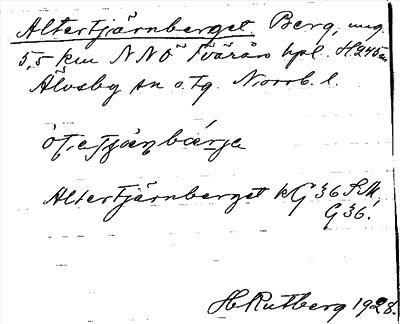 Altertjärnberget. Berg, ung.
5,5 km NNO Tvärån hpl. H 245 m
Älvsby sn o. tg. Norrb. l.
Altertjärnberget kG 36 SM,
G 36.
H Rutberg 1928.